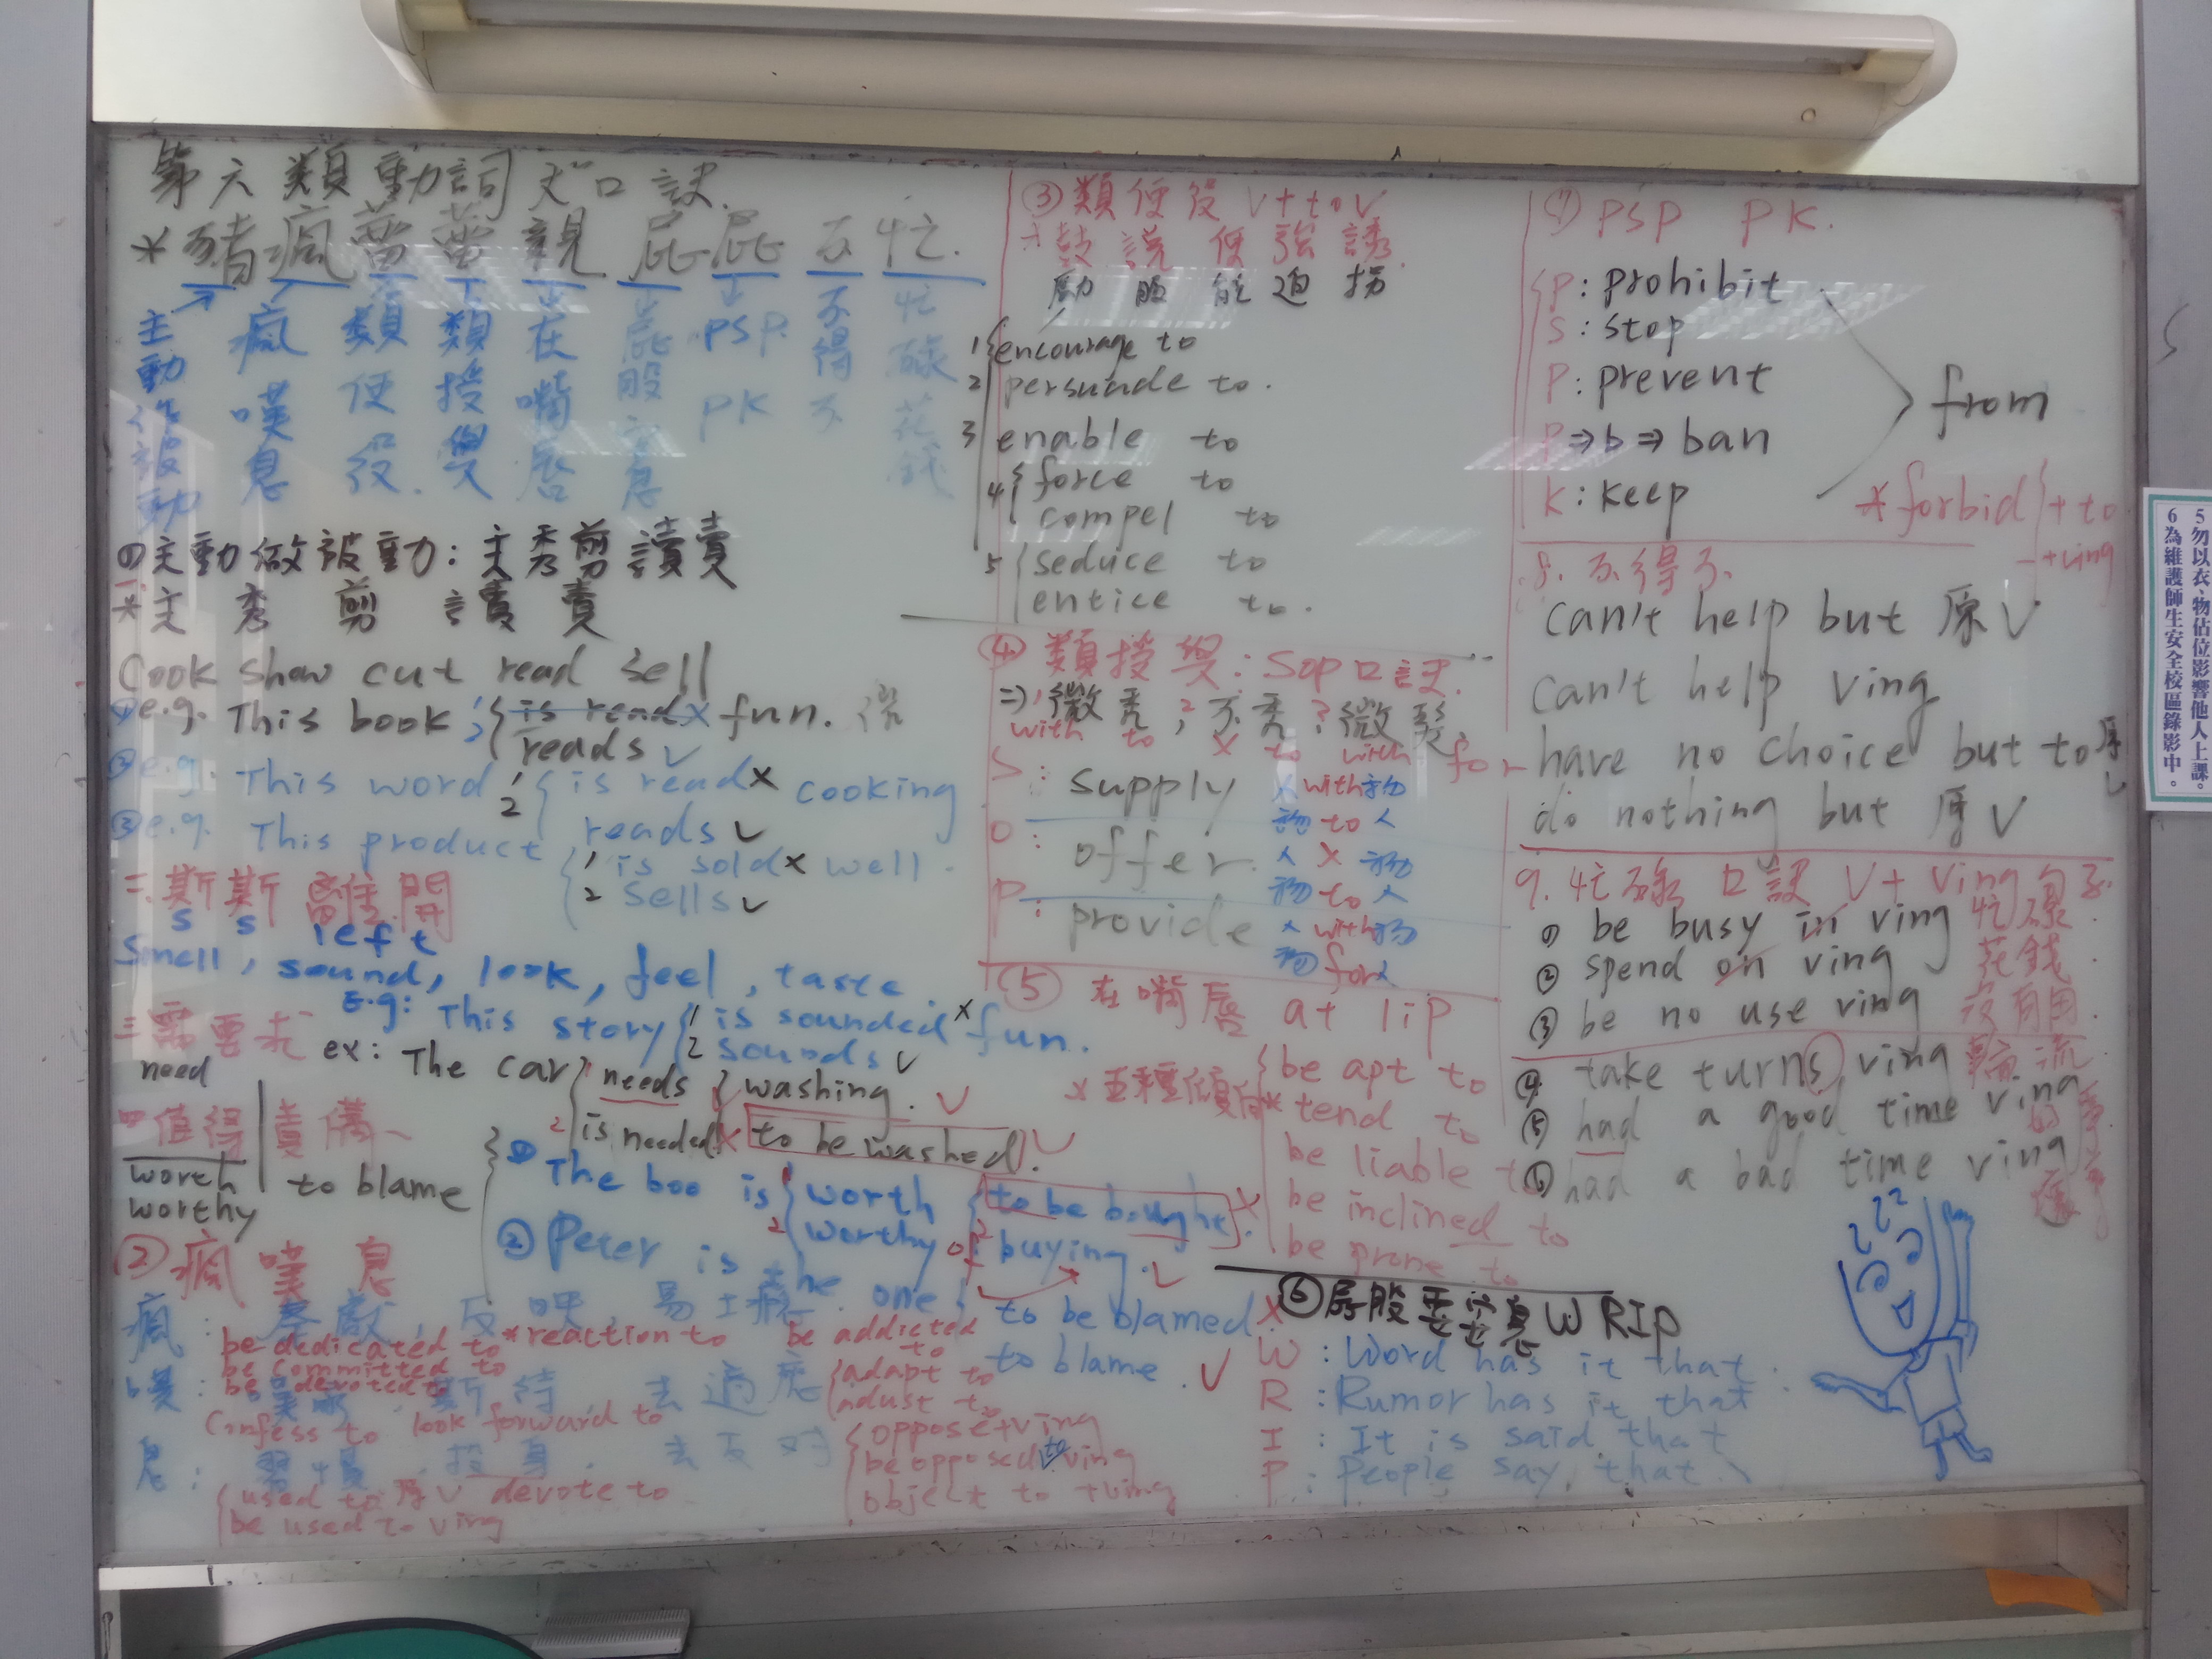 第六類動詞ㄉ口訣.
*豬瘋蕾蕾親屁屁不忙.
主動作被動
瘋嘆息
類使役.
類授與
在嘴唇
屁股安息
PSP PK
不得不
忙碌花錢
①主動做被動:主秀剪讀賣
一*主秀剪讀賣
Cook show cut read sell
①e.g. This book 1 is read x fun.
2 reads ✓
②e.g. This word 1 is read x cooking
2 reads ✓
③e.g. This product 1 is sold x well.
2 sells ✓
二.斯斯離開
S S left
Smell, sound, look, feel, taste.
E.g: This story 1 is sounded x fun.
2 sounds ✓
三需要求
need
ex: The car 1 needs washing. ✓
2 is needed x to be washed. ✓
四值得 責備
worth
worthy
to blame
① The boo is 1 worth to be bought. x
2 worthy of buying. ✓
② Peter is the one to be blamed x
to blame. ✓
②瘋嘆息
瘋: 奉獻, 反映, 易上癮
be dedicated to *reaction to be addicted to
be committed to
be devoted to
嘆: 期待 去適應
adapt to
adust to
Confess to look forward to
息: 習慣 投身. 去反對
oppose+ving
be opposed to ving
object to +ving
used to 原V devote to
be used to ving
③類使役 V+to V
*鼓說使強誘.
勵服能迫拐
1 encourage to
2 persuade to.
3 enable to
4 force to
compel to
5 seduce to
entice to.
④類授與:sop口訣.
⇒1微秀,2不秀?微髮
with to x to with for
S: supply 人with物
物 to 人
O: offer. 人 x 物
物 to 人
P: provide 人with物
物for人
⑤在嘴唇 at lip
*五種傾向* be apt to
tend to
be liable to
be inclined to
be prone to
⑥屁股要安息W RIP
W: Word has it that.
R: Rumor has it that
I: It is said that
P: People say, that.
⑦PSP PK.
P: prohibit
S: stop
P: prevent
P⇒b⇒ban
K: keep
from
*forbid +to
+ving
8. 不得不
can't help but 原V
can't help ving
have no choice but to 原V
do nothing but 原V
9. 忙碌口訣 V+ Ving
① be busy in ving 忙碌
② spend on ving 花錢
③ be no use ving 沒有用.
④ take turns ving 輪流
⑤ had a good time ving
⑥ had a bad time ving
5勿以衣、物佔位影響他人上課。
6為維護師生安全校區錄影中。